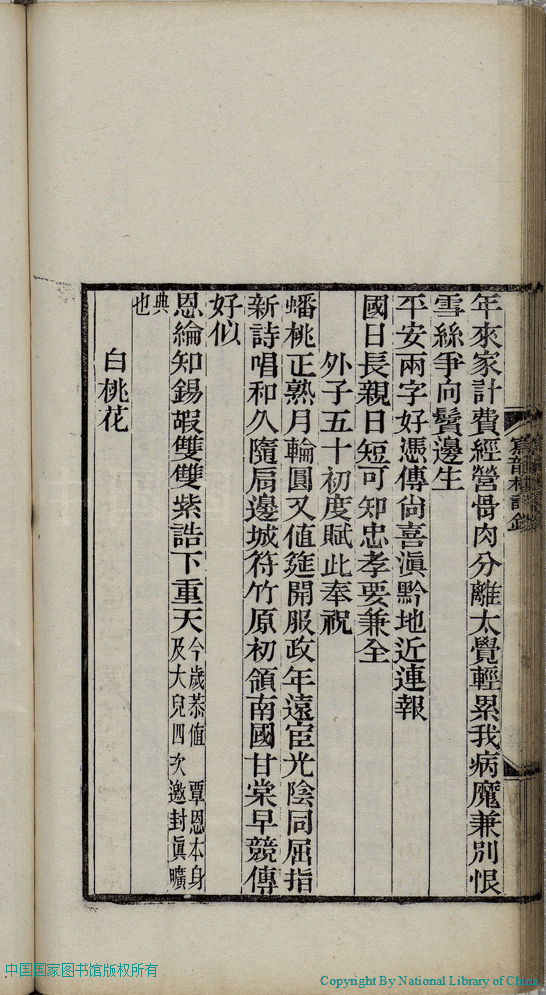 年來家計費經營骨肉分離太覺輕累我病魔兼別恨
雪絲爭向鬢邊生
平安兩字好憑傳尙喜滇黔地近連報
國日長親日短可知忠孝要兼全
外子五十初度賦此奉祝
蟠桃正熟月輪圓又值筵開服政年遠宦光陰同屈指
新詩唱和久隨肩邊城符竹原初領南國甘棠早競傳
好似
恩綸知錫嘏雙雙紫誥下重天今歲恭值 覃恩本身
及大兒四次邀封眞曠
典
也
白桃花
中国国家图书馆版权所有
Copyright By National Library of China